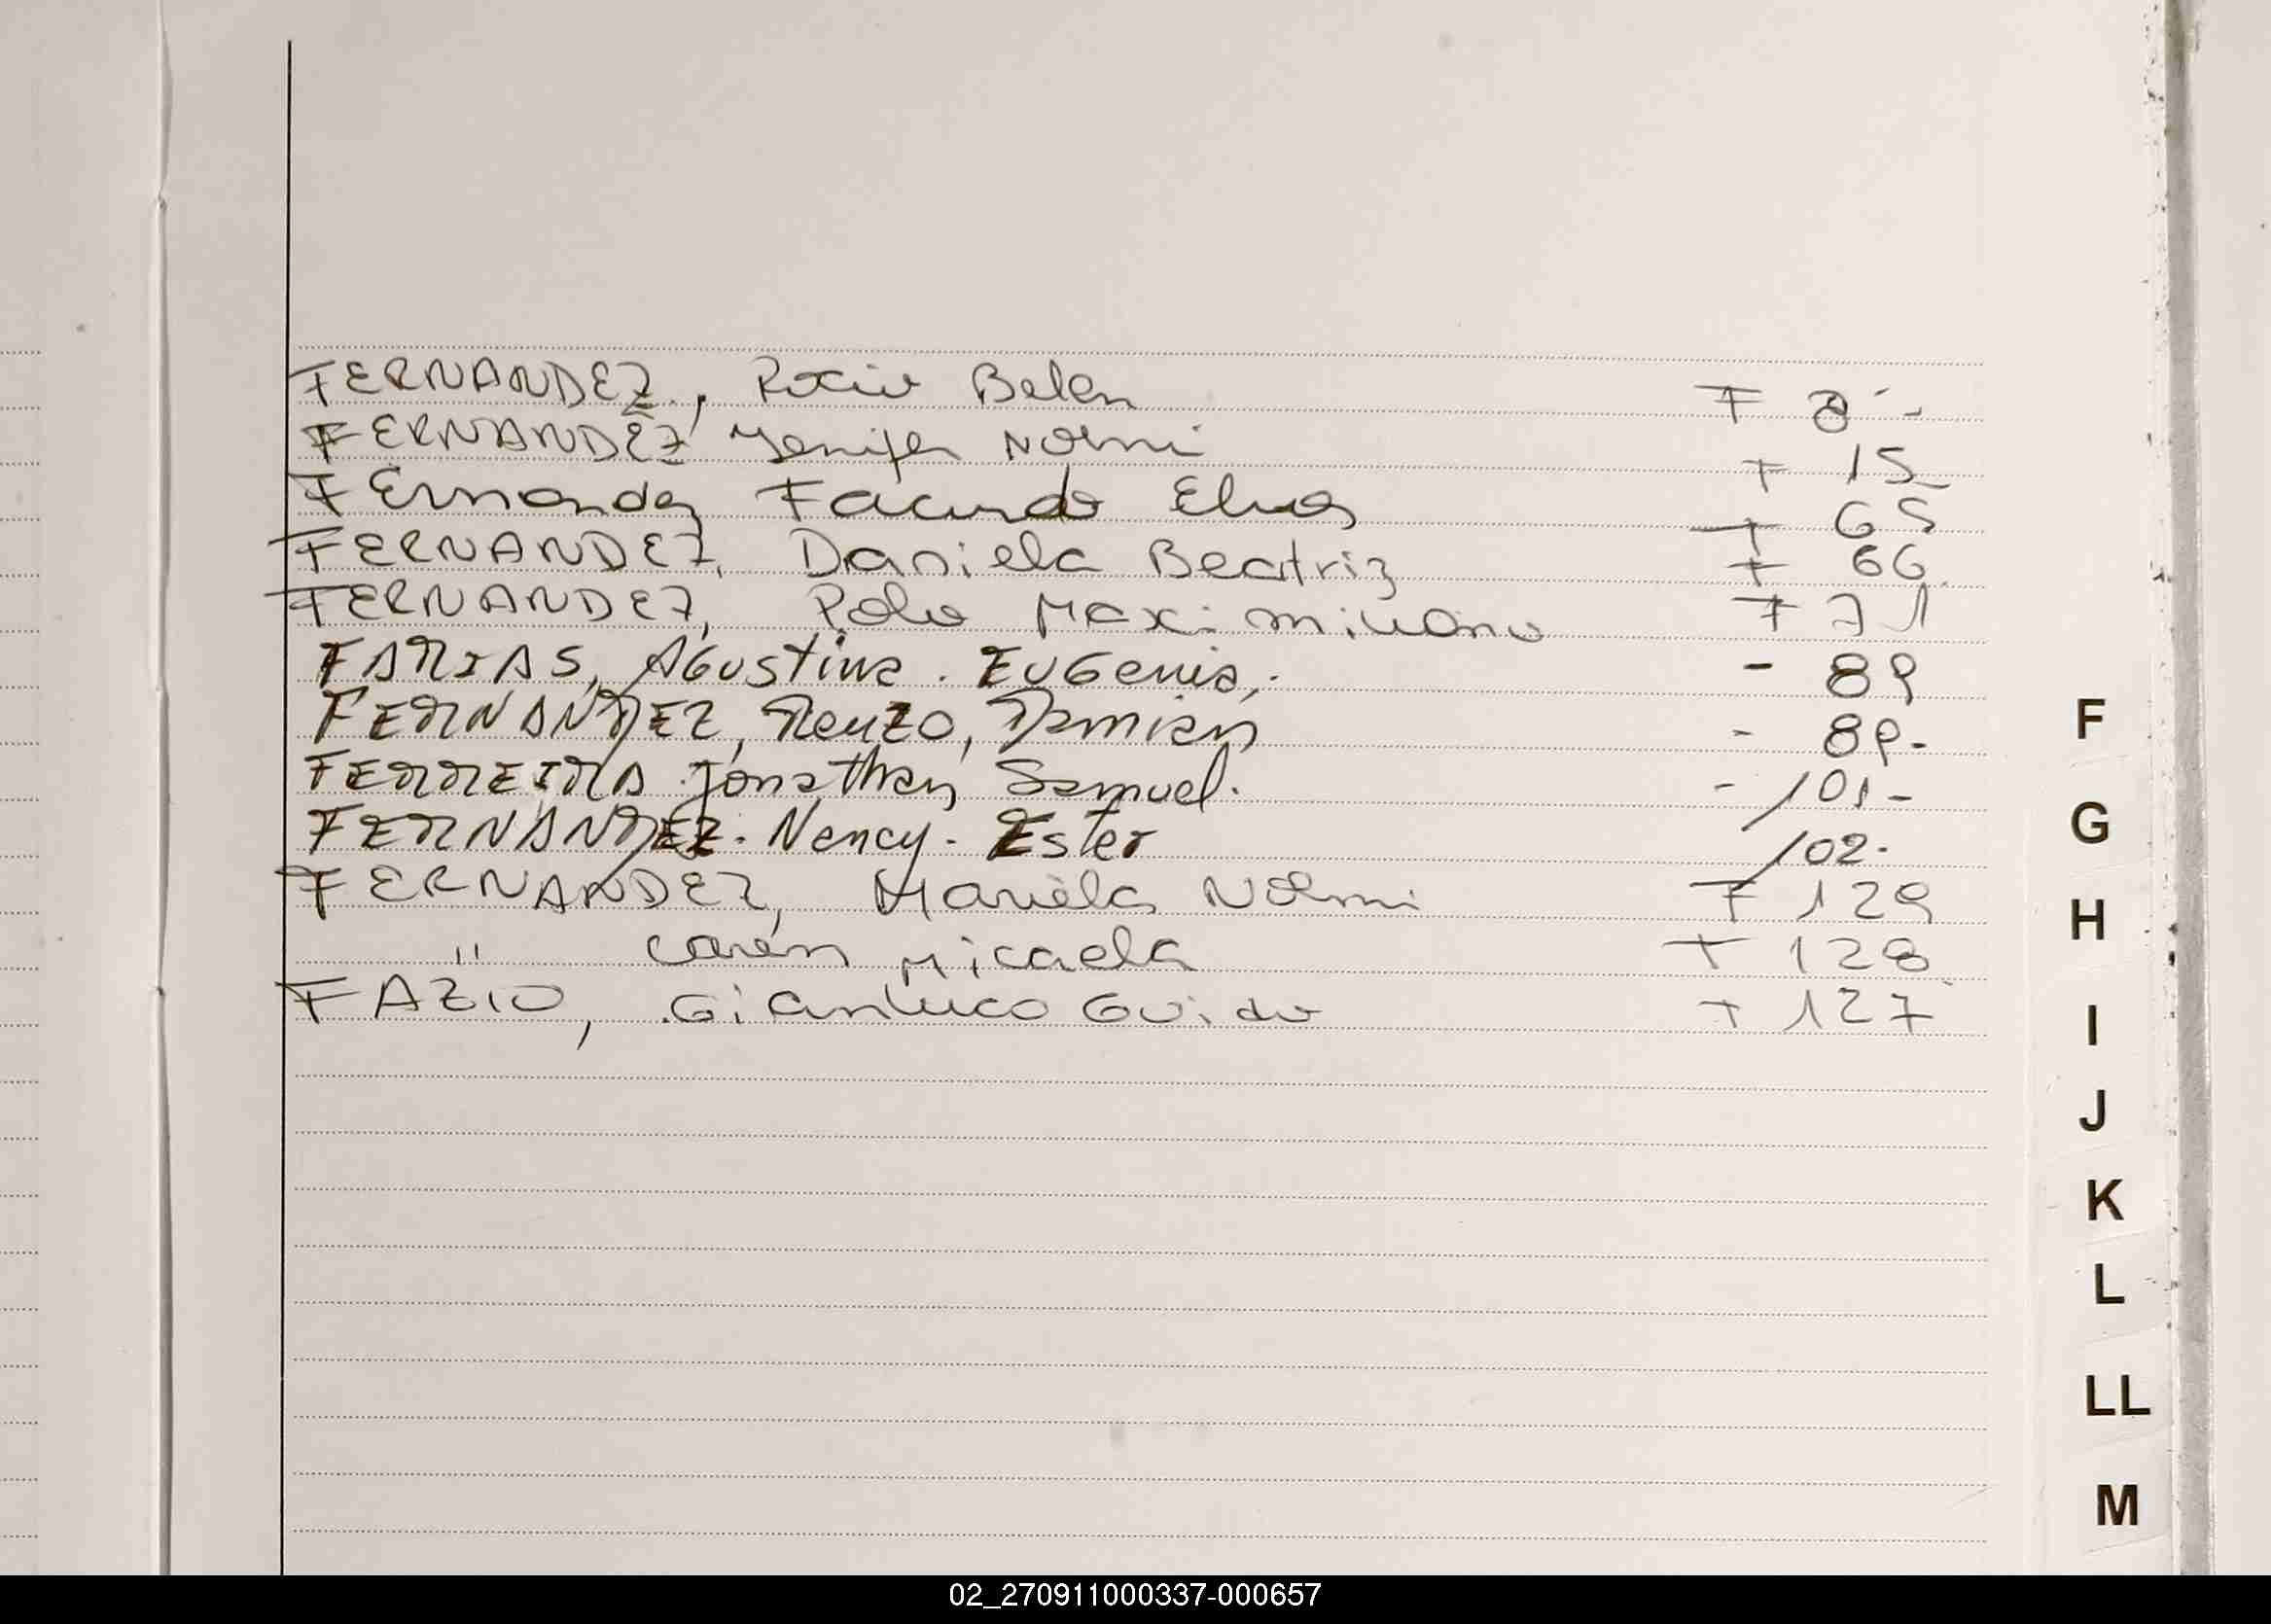 FERNANDEZ, Rocio Belen F 8 -
FERNANDEZ Yenifer Noemi F 15
FErnandez Facundo Elias F 65
FERNANDEZ, Daniela Beatriz F 66
FERNANDEZ, Pablo Maximiliano F 71
FARIAS, Agustina. EUGenia, - 89
FERNANDEZ, Renzo, Damian - 89-
FERREIRA Jonathan Samuel. - 101-
FERNANDEZ. Nancy- Ester 102.
FERNANDEZ, Mariela Noemi F 129
" Caren Micaela F 128
FAZIO, Gianluco Guido F 127
F
G
H
I
J
K
L
LL
M
02_270911000337-000657